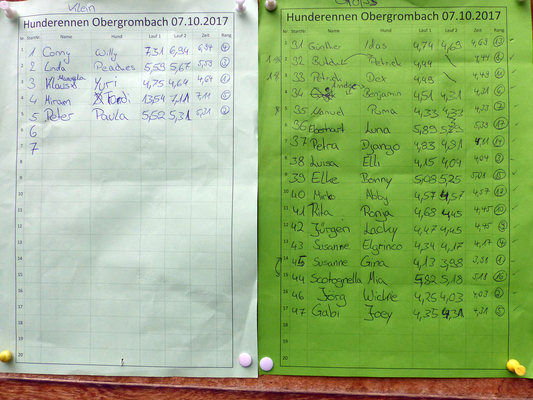 Klein
Hunderennen Obergrombach 07.10.2017
Nr. StartNr. Name Hund Lauf 1 Lauf 2 Zeit Rang
1 Conny Willy 7,31 6,94 6,94 4
2 Linda Peaches 5,59 5,67 5,59 3
3 Klaus Manuela Yuri 4,75 4,64 4,64 1
4 Miriam Fondi 13,54 7,11 7,11 5
5 Peter Paula 5,52 5,31 5,31 2
6
7
Hunderennen Obergrombach 07.10.2017
Nr. StartNr. Name Hund Lauf 1 Lauf 2 Zeit Rang
31 Günther Idas 4,74 4,69 4,69 13
32 Petrick 4,44 4,44
33 Petrick Dex 4,49 4,49 11
34 Benjamin 4,51 4,31 4,31
35 Manuel Puma 4,33 4,33 4,33 7
36 Eberhart Luna 5,89 5,39 17
37 Petra Django 4,93 4,91 4,91 14
38 Luisa Elli 4,15 4,04 4,04 3
39 Elke Bonny 5,08 5,25 5,08 15
40 Mirko Abby 4,57 4,57 4,57 12
41 Rita Ronja 4,68 4,45 4,45 10
42 Jürgen Lacky 4,47 4,45 4,45 9
43 Susanne Elgrinco 4,34 4,17 4,17 4
45 Susanne Gina 4,13 3,98 3,98 1
44 Scotognella Mia 5,82 5,18 5,18 16
46 Jörg Wickie 4,25 4,03 4,03 2
47 Gabi Joey 4,35 4,31 4,31 5